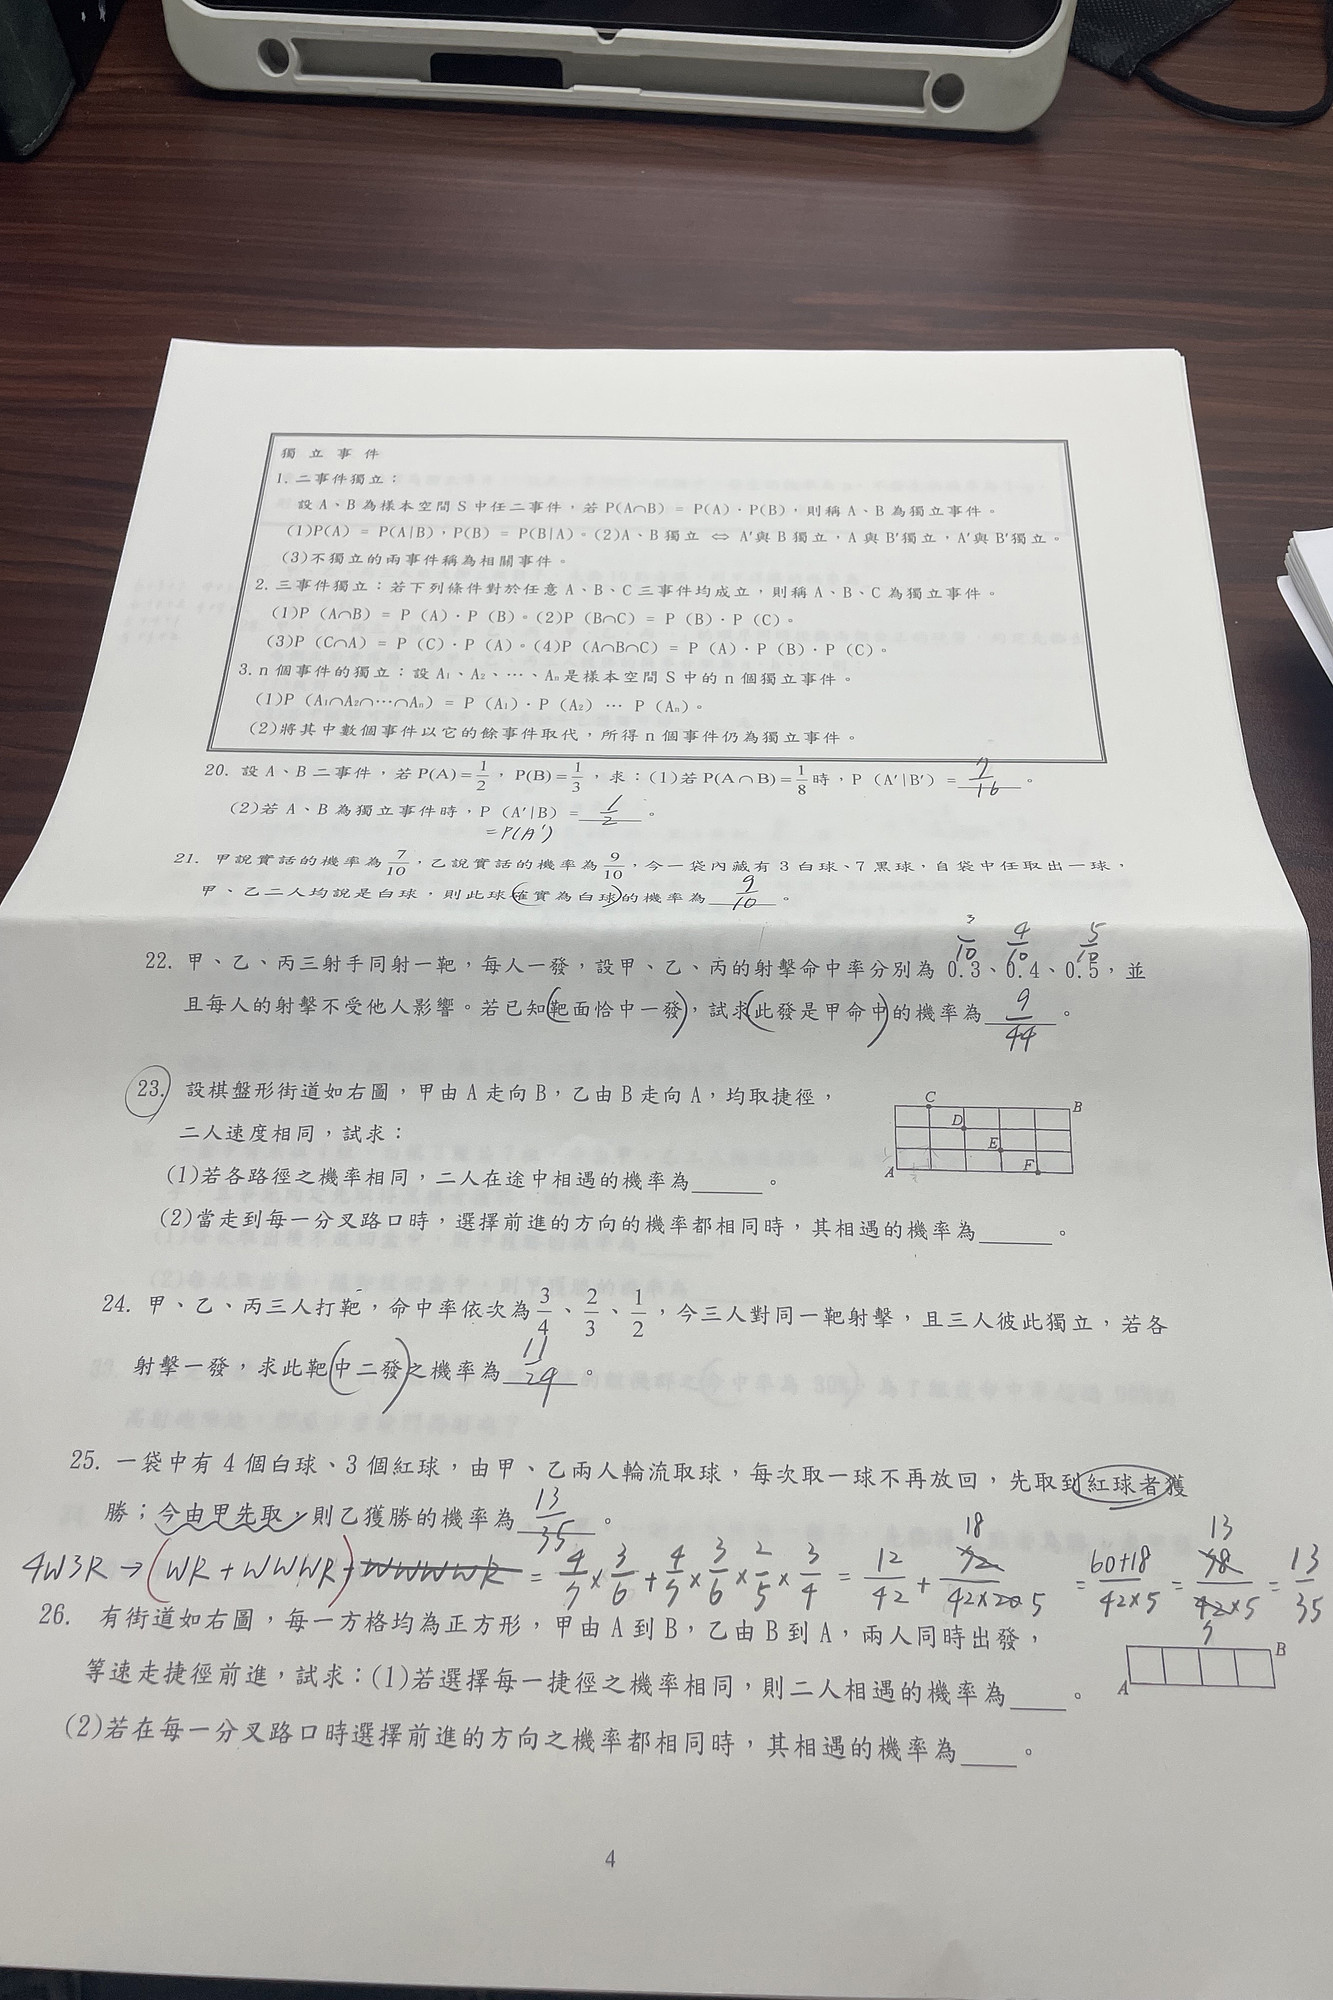 獨立事件
1.二事件獨立：
設A、B為樣本空間S中任二事件，若P(A∩B) = P(A)·P(B)，則稱A、B為獨立事件。
(1)P(A) = P(A|B)，P(B) = P(B|A)。(2)A、B獨立 ⇔ A'與B獨立，A與B'獨立，A'與B'獨立。
(3)不獨立的兩事件稱為相關事件。
2.三事件獨立：若下列條件對於任意A、B、C三事件均成立，則稱A、B、C為獨立事件。
(1)P (A∩B) = P (A)·P (B)。(2)P (B∩C) = P (B)·P (C)。
(3)P (C∩A) = P (C)·P (A)。(4)P (A∩B∩C) = P (A)·P (B)·P (C)。
3.n個事件的獨立：設A₁、A₂、…、Aₙ是樣本空間S中的n個獨立事件。
(1)P (A₁∩A₂∩…∩Aₙ) = P (A₁)·P (A₂) … P (Aₙ)。
(2)將其中數個事件以它的餘事件取代，所得n個事件仍為獨立事件。
20. 設A、B二事件，若P(A)=1/2，P(B)=1/3，求：(1)若P(A∩B)=1/8時，P (A'|B') = 7/16。
(2)若A、B為獨立事件時，P (A'|B) = 1/2。
=P(A')
21. 甲說實話的機率為7/10，乙說實話的機率為9/10，今一袋內藏有3白球、7黑球，自袋中任取出一球，
甲、乙二人均說是白球，則此球確實為白球的機率為 9/10。
3/10 4/10 5/10
22. 甲、乙、丙三射手同射一靶，每人一發，設甲、乙、丙的射擊命中率分別為 0.3、0.4、0.5，並
且每人的射擊不受他人影響。若已知靶面恰中一發，試求此發是甲命中的機率為 9/44。
23. 設棋盤形街道如右圖，甲由A走向B，乙由B走向A，均取捷徑，
二人速度相同，試求：
C
B
D
E
A
F
(1)若各路徑之機率相同，二人在途中相遇的機率為______。
(2)當走到每一分叉路口時，選擇前進的方向的機率都相同時，其相遇的機率為______。
24. 甲、乙、丙三人打靶，命中率依次為3/4、2/3、1/2，今三人對同一靶射擊，且三人彼此獨立，若各
射擊一發，求此靶中二發之機率為 11/24。
25. 一袋中有4個白球、3個紅球，由甲、乙兩人輪流取球，每次取一球不再放回，先取到紅球者獲
勝；今由甲先取，則乙獲勝的機率為 13/35。
4W3R → (WR + WWWR) + WWWWR = 4/7 × 3/6 + 4/7 × 3/6 × 2/5 × 3/4 = 12/42 + 72/42×20 18 5 = 60+18/42×5 = 78/42×5 13 7 = 13/35
26. 有街道如右圖，每一方格均為正方形，甲由A到B，乙由B到A，兩人同時出發，
B
A
等速走捷徑前進，試求：(1)若選擇每一捷徑之機率相同，則二人相遇的機率為____。
(2)若在每一分叉路口時選擇前進的方向之機率都相同時，其相遇的機率為____。
4